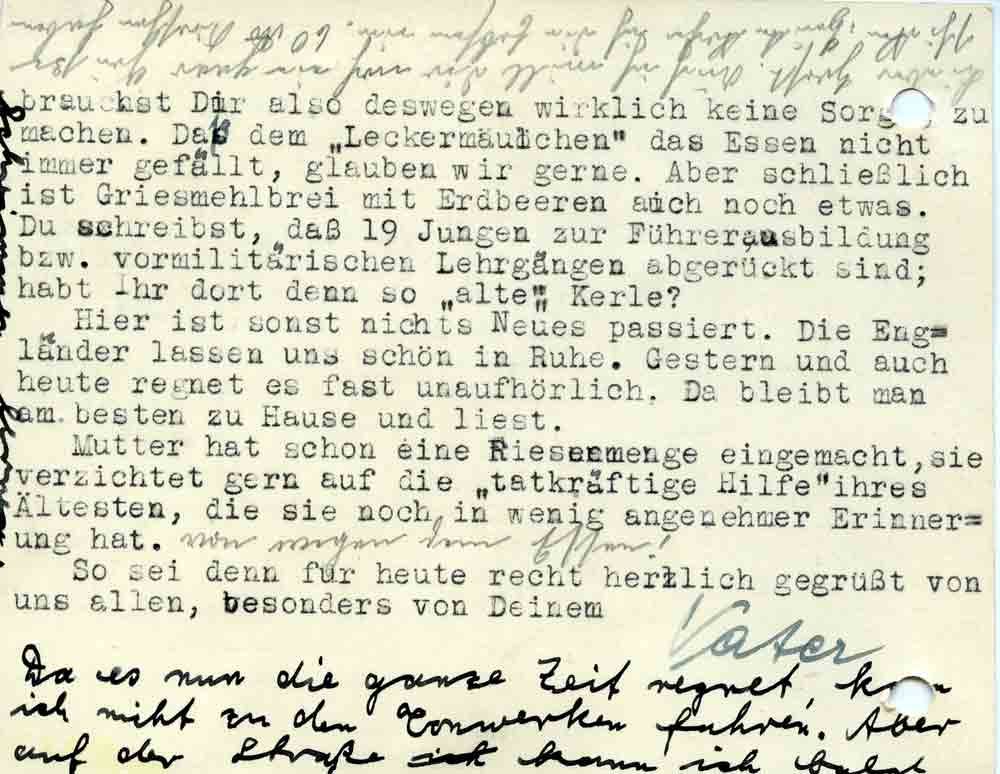 brauchst Dir also deswegen wirklich keine Sorge zu
machen. Daß dem „Leckermäulchen" das Essen nicht
immer gefällt, glauben wir gerne. Aber schließlich
ist Griesmehlbrei mit Erdbeeren auch noch etwas.
Du schreibst, daß 19 Jungen zur Führerausbildung
bzw. vormilitärischen Lehrgängen abgerückt sind;
habt Ihr dort denn so „alte" Kerle?
Hier ist sonst nichts Neues passiert. Die Eng=
länder lassen uns schön in Ruhe. Gestern und auch
heute regnet es fast unaufhörlich. Da bleibt man
am besten zu Hause und liest.
Mutter hat schon eine Riesenmenge eingemacht, sie
verzichtet gern auf die „tatkräftige Hilfe" ihres
Ältesten, die sie noch in wenig angenehmer Erinner=
ung hat. von wegen dem Essen!
So sei denn für heute recht herzlich gegrüßt von
uns allen, besonders von Deinem
Vater
Da es nun die ganze Zeit regnet, kann
ich niht zu den Tonwerken fahren. Aber
auf der Straße kann ich